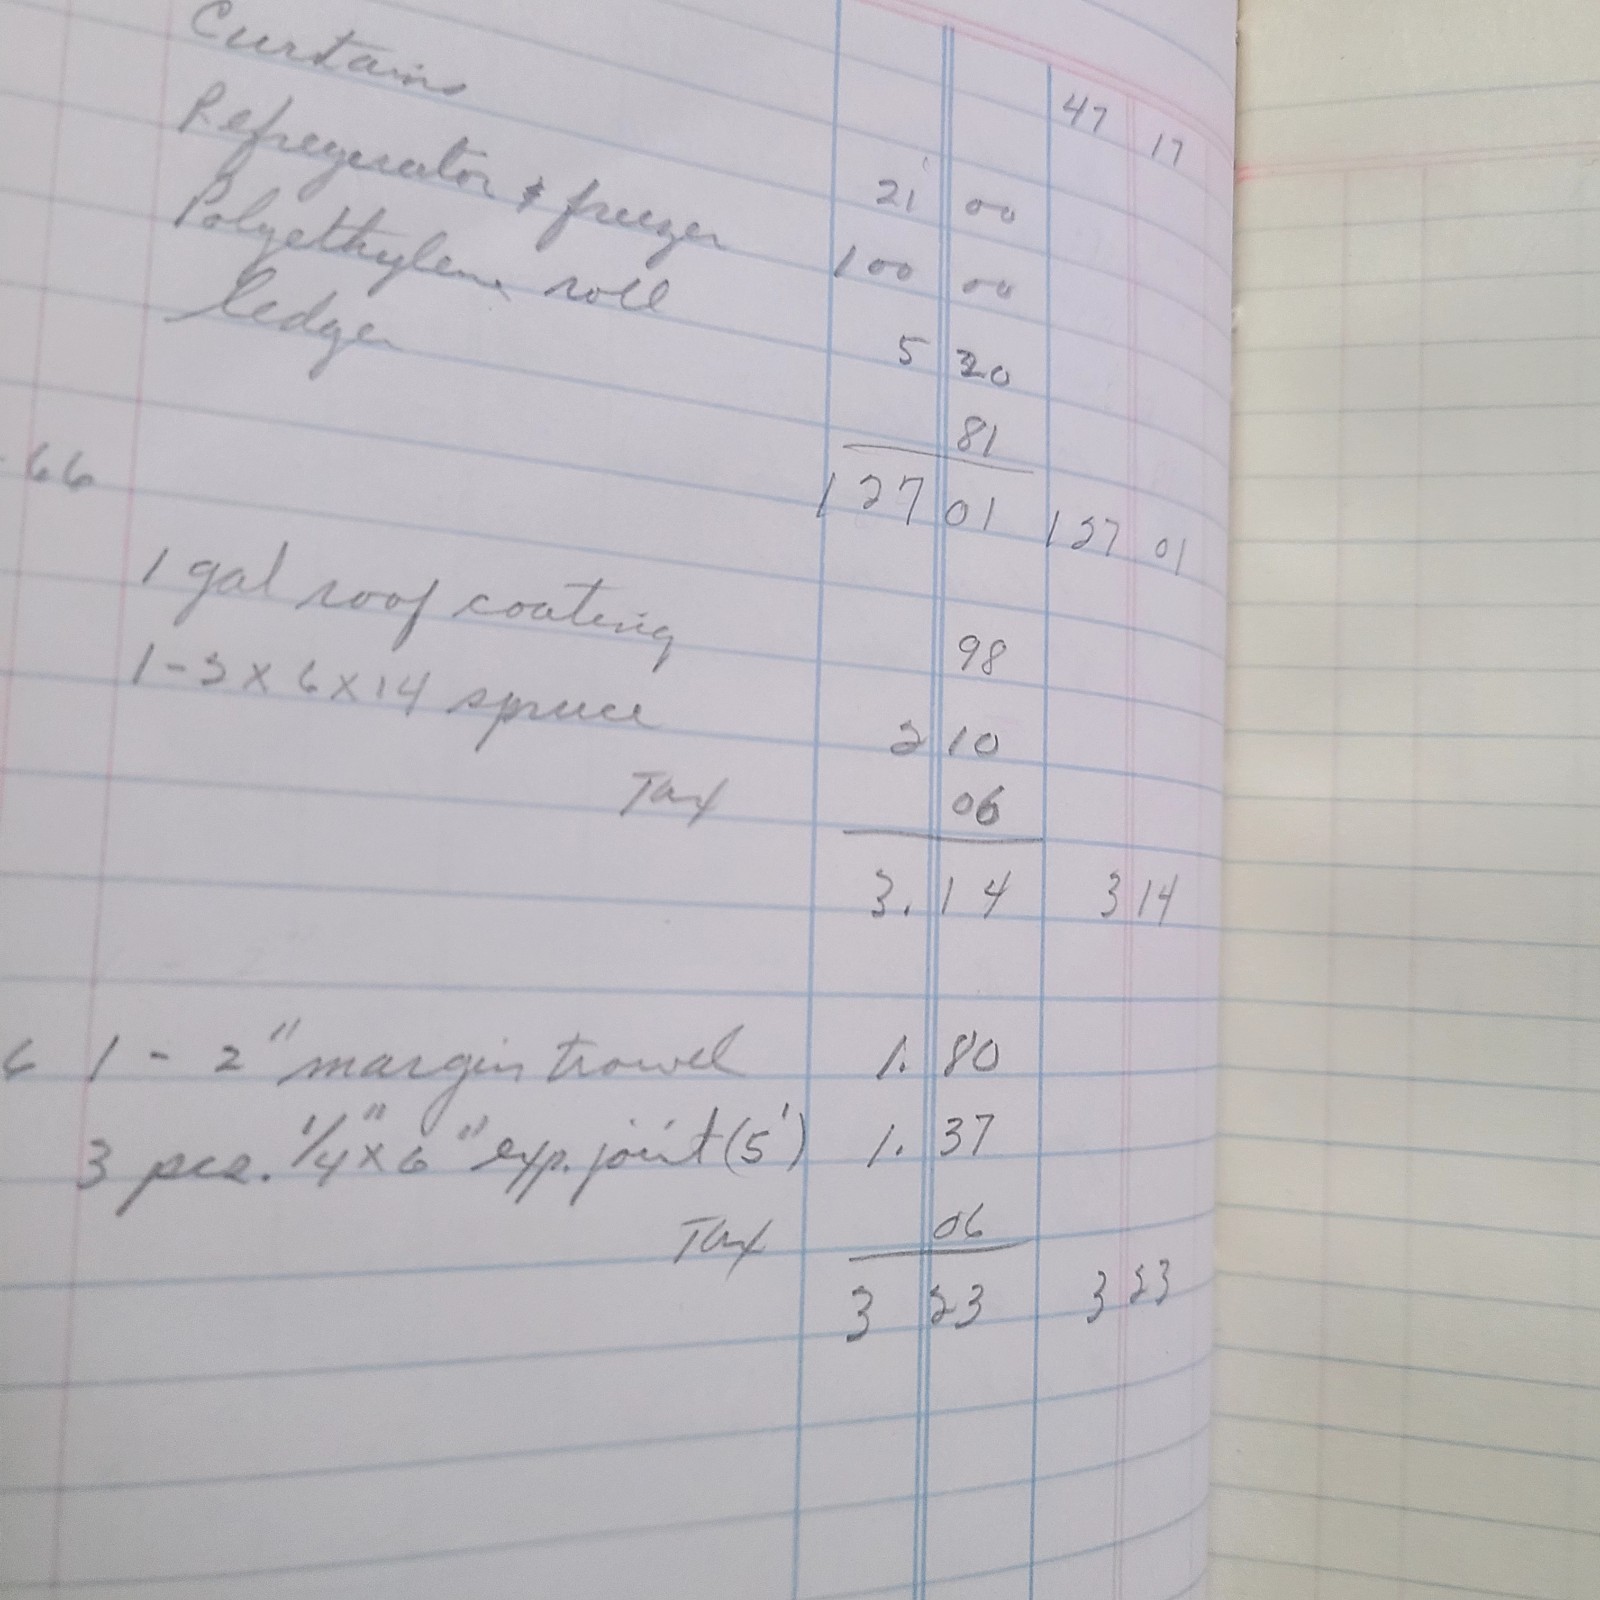 47 17
Curtains 21 00
Refregerator & freezer 100 00
Polyethylene roll 5 20
ledger 81
127 01 127 01
-66
1 gal roof coating 98
1-2x6x14 spruce 2 10
Tax 06
3.14 3 14
6 1 - 2" margin trowel 1.80
3 pcs. 1/4"x6" exp. joint (5') 1.37
Tax 06
3 23 3 23